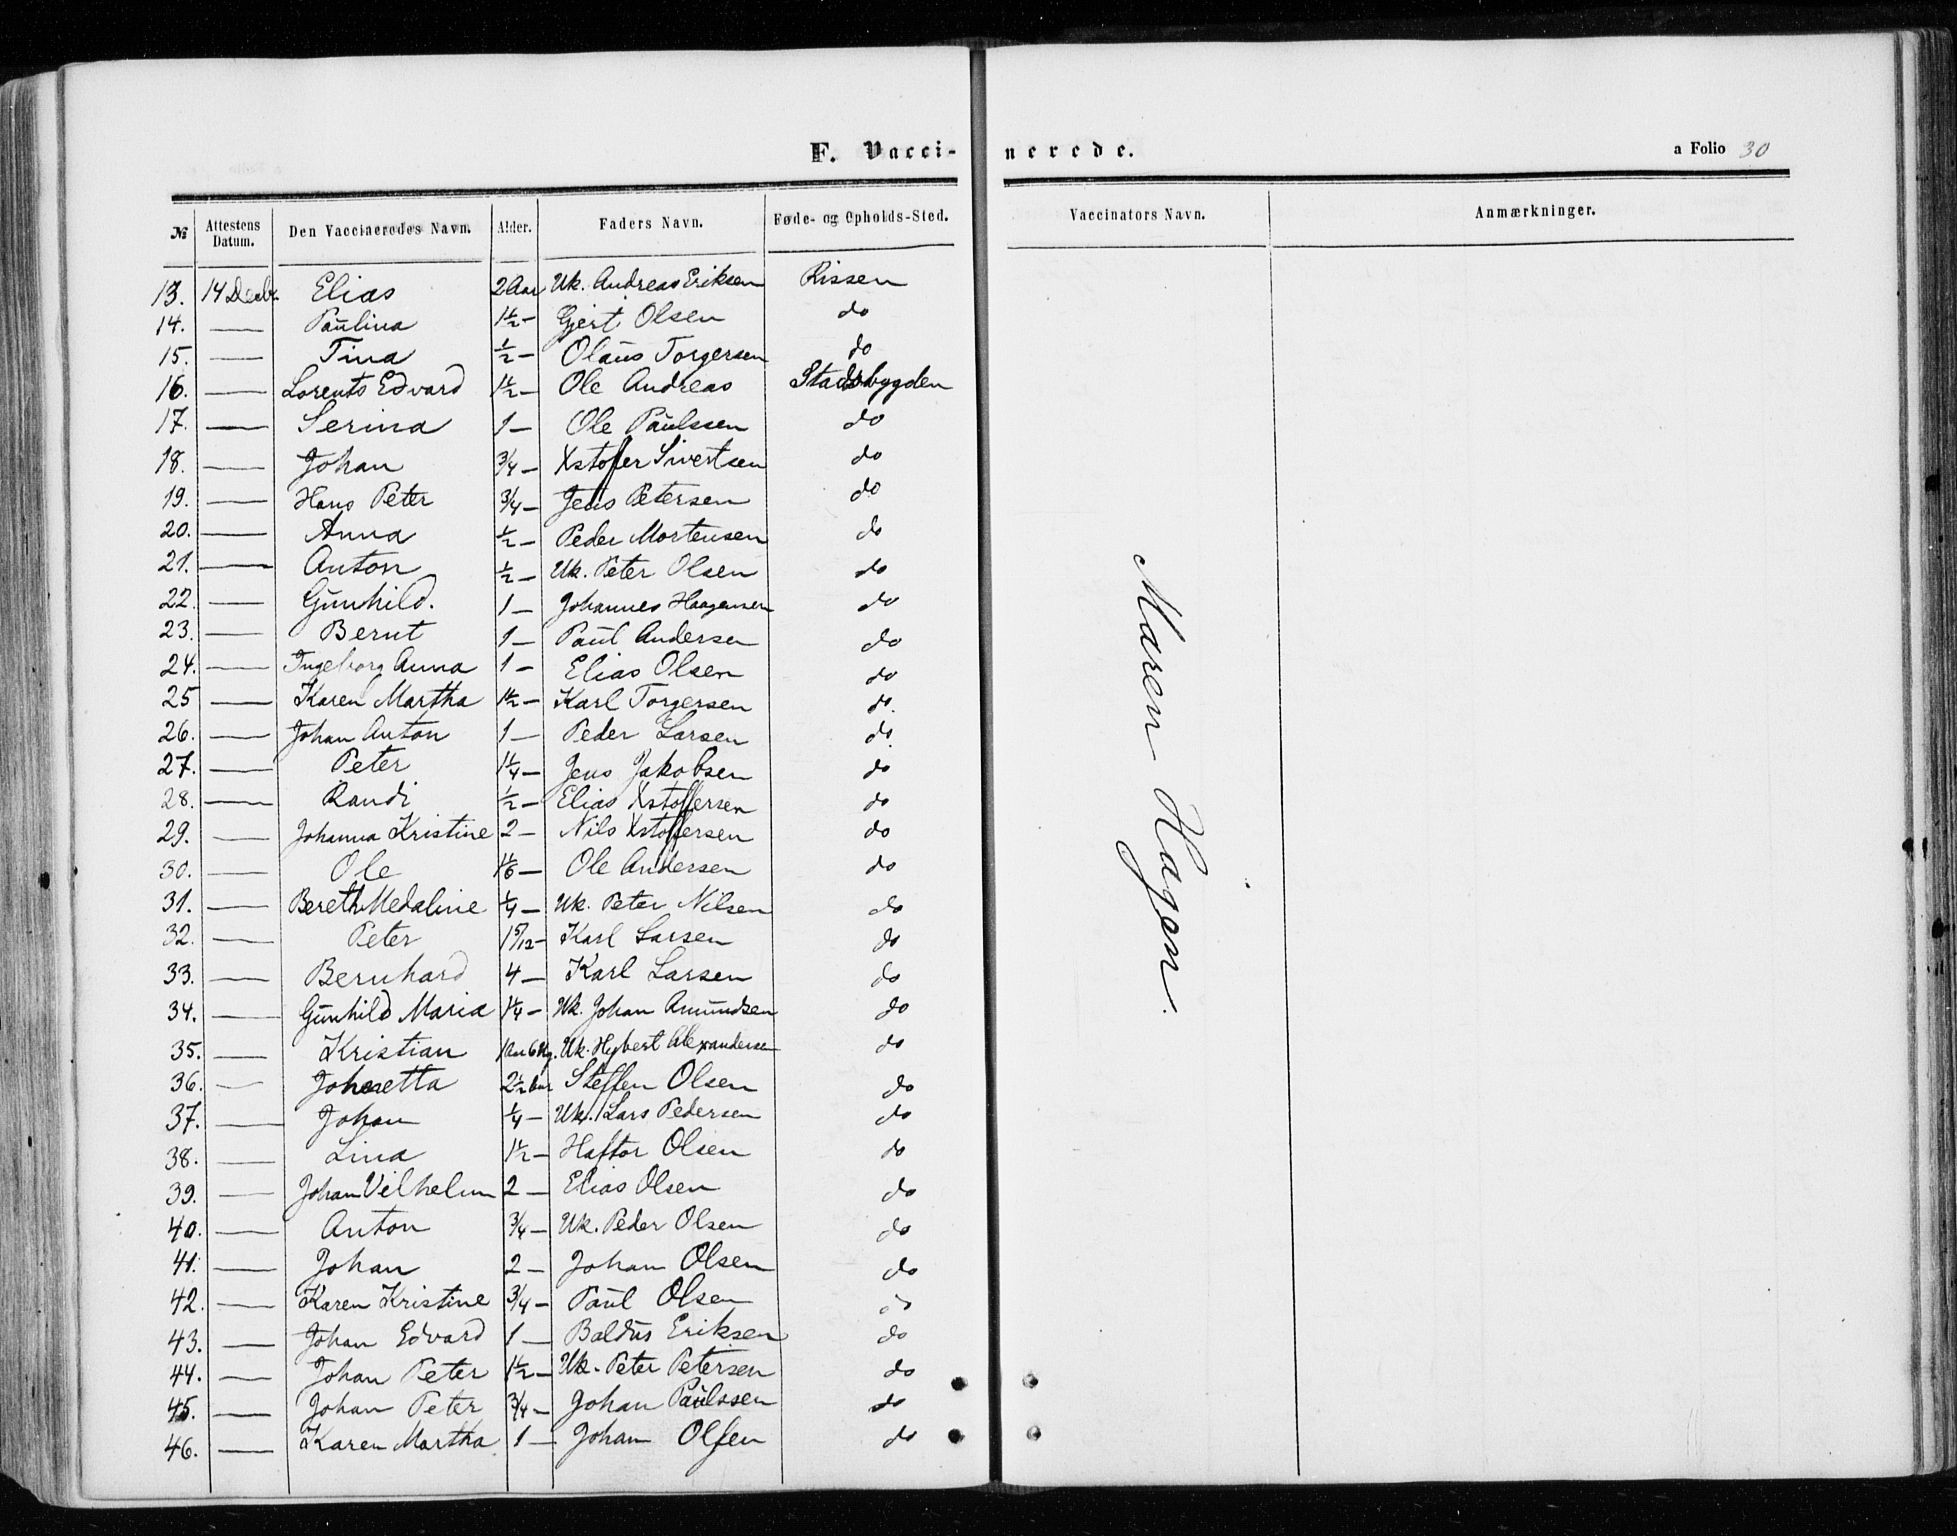 F. Vaccinerede.
a Folio 30
№ Attestens Datum. Den Vaccineredes Navn. Alder. Faders Navn. Føde- og Opholds-Sted. Vaccinators Navn. Anmærkninger.
13. 14 Decbr. Elias 2 Aar Uk. Andreas Eriksen Rissen
14. — Paulina 1½ — Gjert Olsen do
15. — Tina ½ — Olaus Torgersen do
16. — Lorents Edvard 1½ — Ole Andreas Stadsbygden
17. — Serina 1 — Ole Paulssen do
18. — Johan ¾ — Xstoffer Sivertsen do
19. — Hans Peter ¾ — Jens Petersen do
20. — Anna ½ — Peder Mortensen do
21. — Anton ½ — Uk. Peter Olsen do
22. — Gunhild. 1 — Johannes Haagensen do
23. — Bernt 1 — Paul Andersen do
24. — Ingeborg Anna 1 — Elias Olsen do
25 — Karen Martha 1½ — Karl Torgersen do.
26. — Johan Anton 1 — Peder Larsen do.
27. — Peter 1¼ — Jens Jakobsen do
28. — Randi ½ — Elias Xstoffersen do
29. — Johanna Kristine 2 — Nils Xstoffersen do
30. — Ole 1⅙ — Ole Andersen do
31. — Bereth Medaline ¼ — Uk. Peter Nilsen do
32. — Peter 1 5/12 — Karl Larsen do
33. — Bernhard 4 — Karl Larsen do
34. — Gunhild Maria 1¼ — Uk. Johan Amundsen do
35. — Kristian 1 Aar 6 Ug. Uk. Hybert Alexandersen do
36. — Johanetta 2½ Aar Steffen Olsen do
37. — Johan ¼ — Uk. Lars Pedersen do
38. — Lina 1½ — Haftor Olsen do
39. — Johan Vilhelm 2 — Elias Olsen do
40. — Anton ¾ — Uk. Peder Olsen do
41. — Johan 2 — Johan Olsen do
42. — Karen Kristine ¾ — Paul Olsen do
43. — Johan Edvard 1 — Baldus Eriksen do
44. — Johan Peter 1½ — Uk. Peter Petersen do
45. — Johan Peter ¾ — Johan Paulssen do
46. — Karen Martha 1 — Johan Olsen do
Maren Hagen.